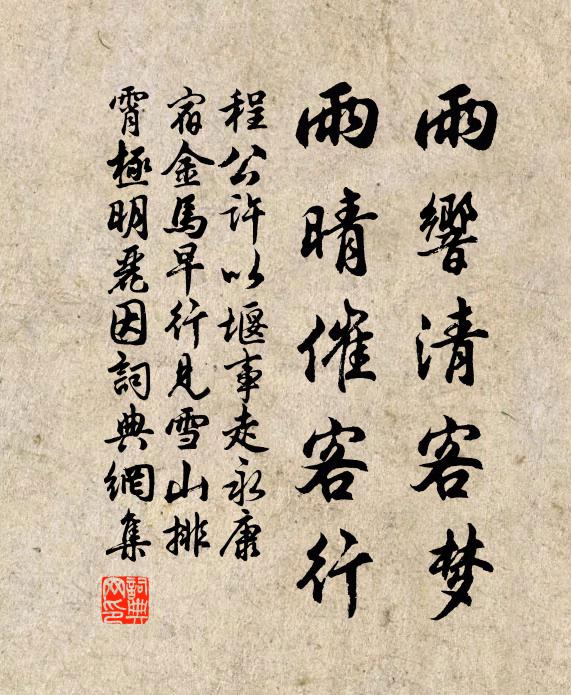 雨響清客梦
雨晴催客行
程公許以堰事走永康
宿金馬早行見雪山排
霄極明麗因詞典網集
詞典网印